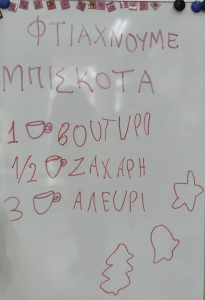 ΦΤΙΑΧΝΟΥΜΕ
ΜΠΙΣΚΟΤΑ
1 ΒΟΥΤΥΡΟ
1/2 ΖΑΧΑΡΗ
3 ΑΛΕΥΡΙ